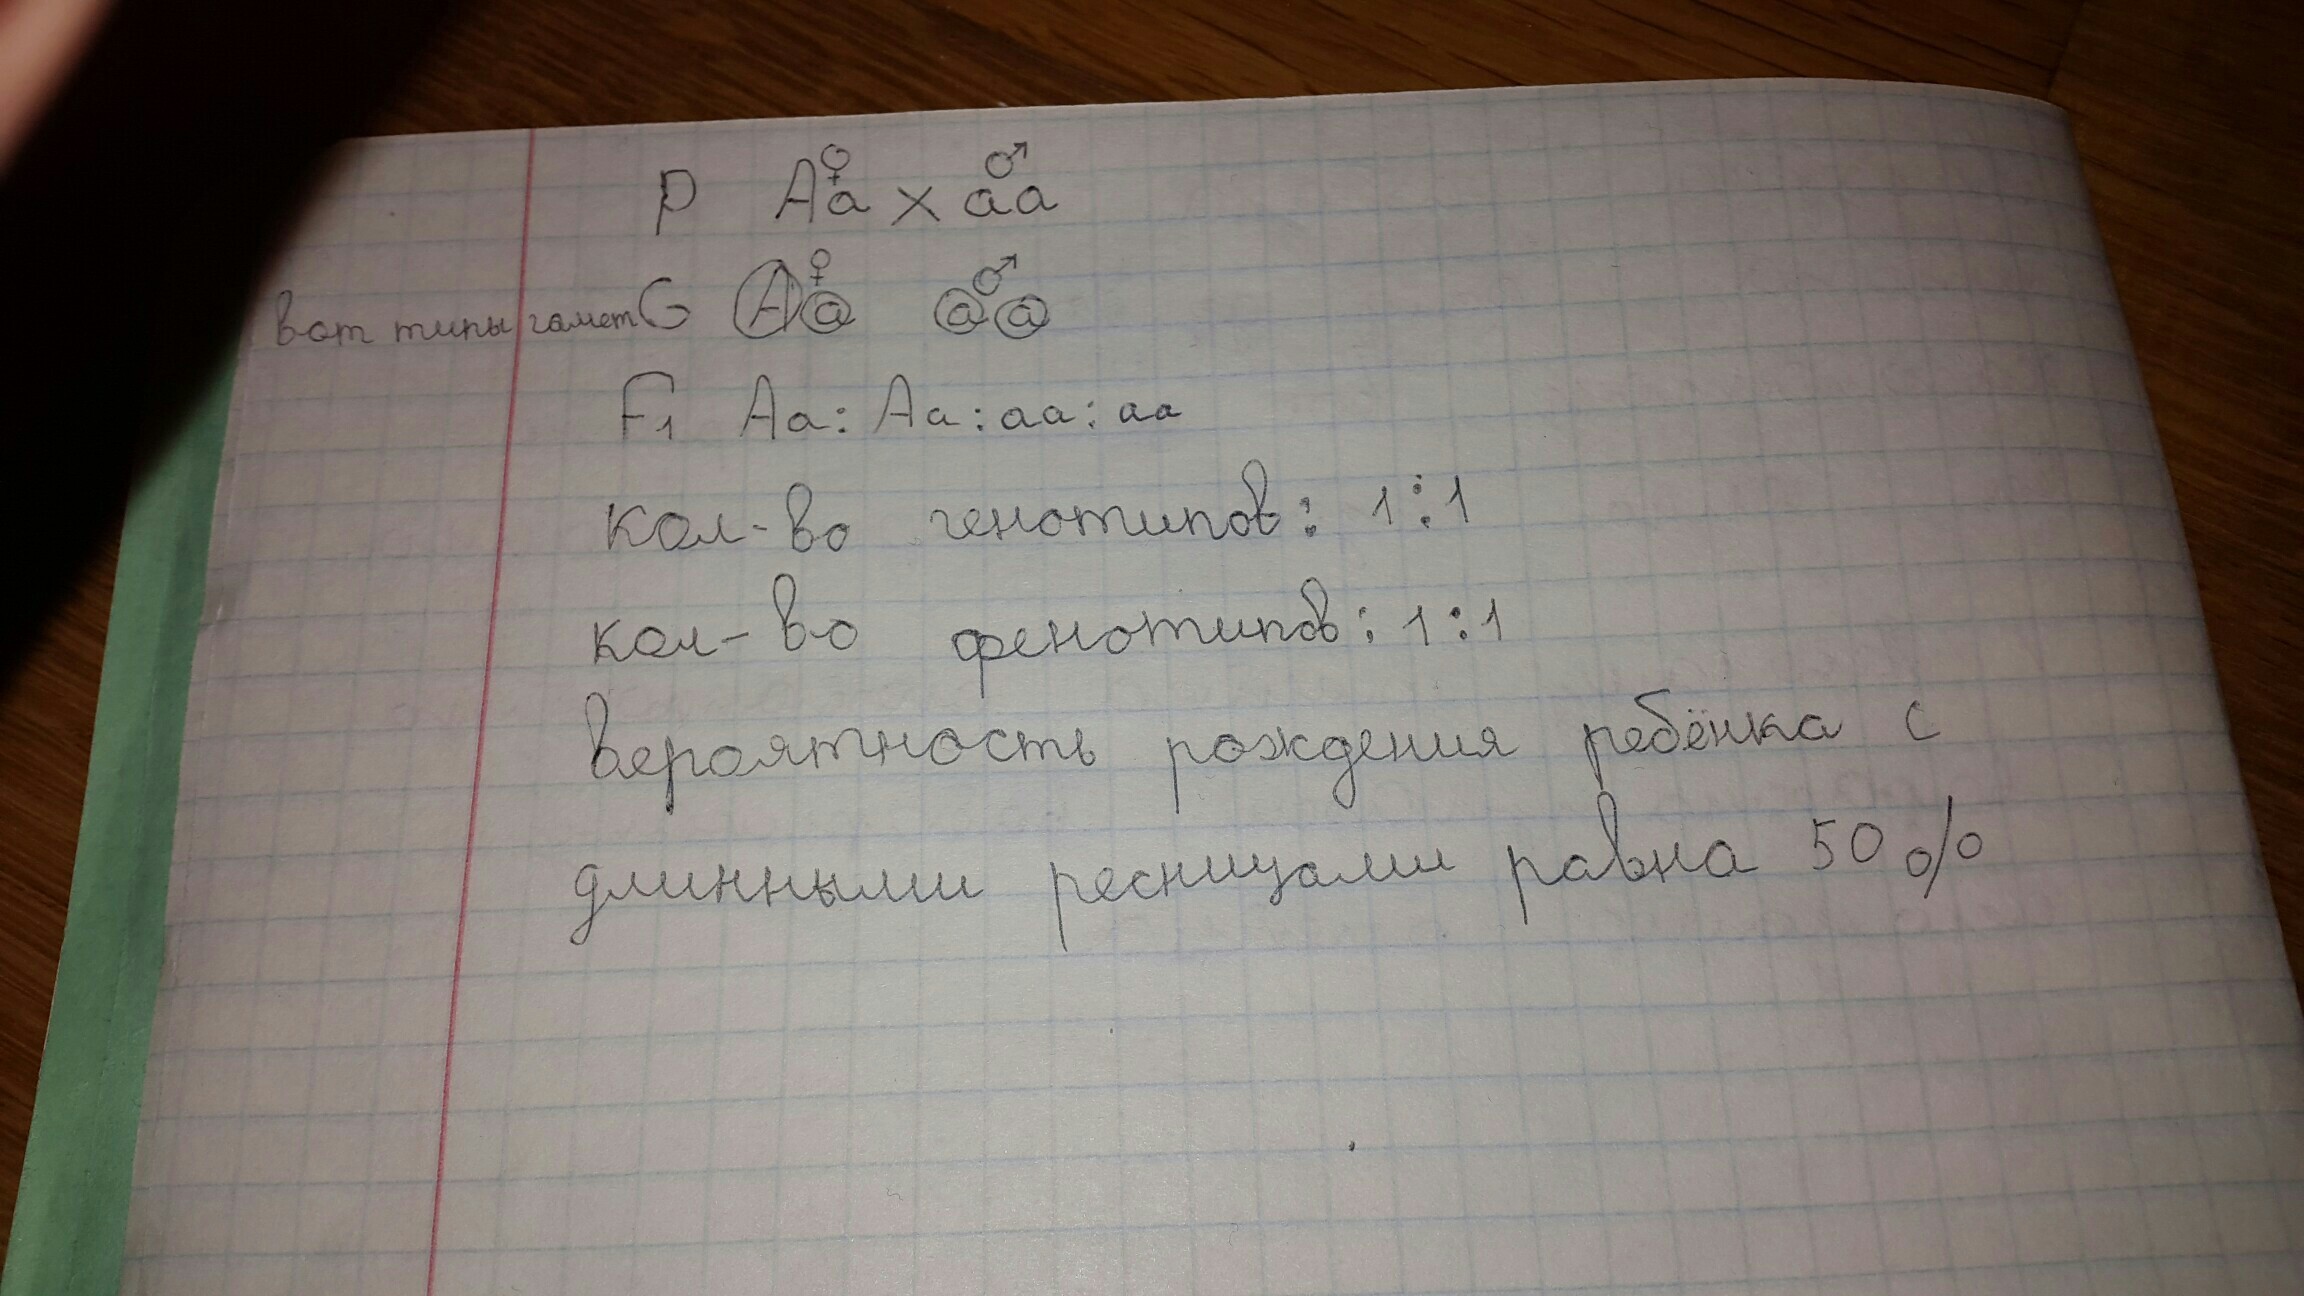 P ♀Aa x ♂aa
вот типы гамет G ♀ A a ♂ a a
F1 Aa: Aa: aa: aa
кол-во генотипов: 1:1
кол-во фенотипов: 1:1
вероятность рождения ребёнка с
длинными ресницами равна 50%